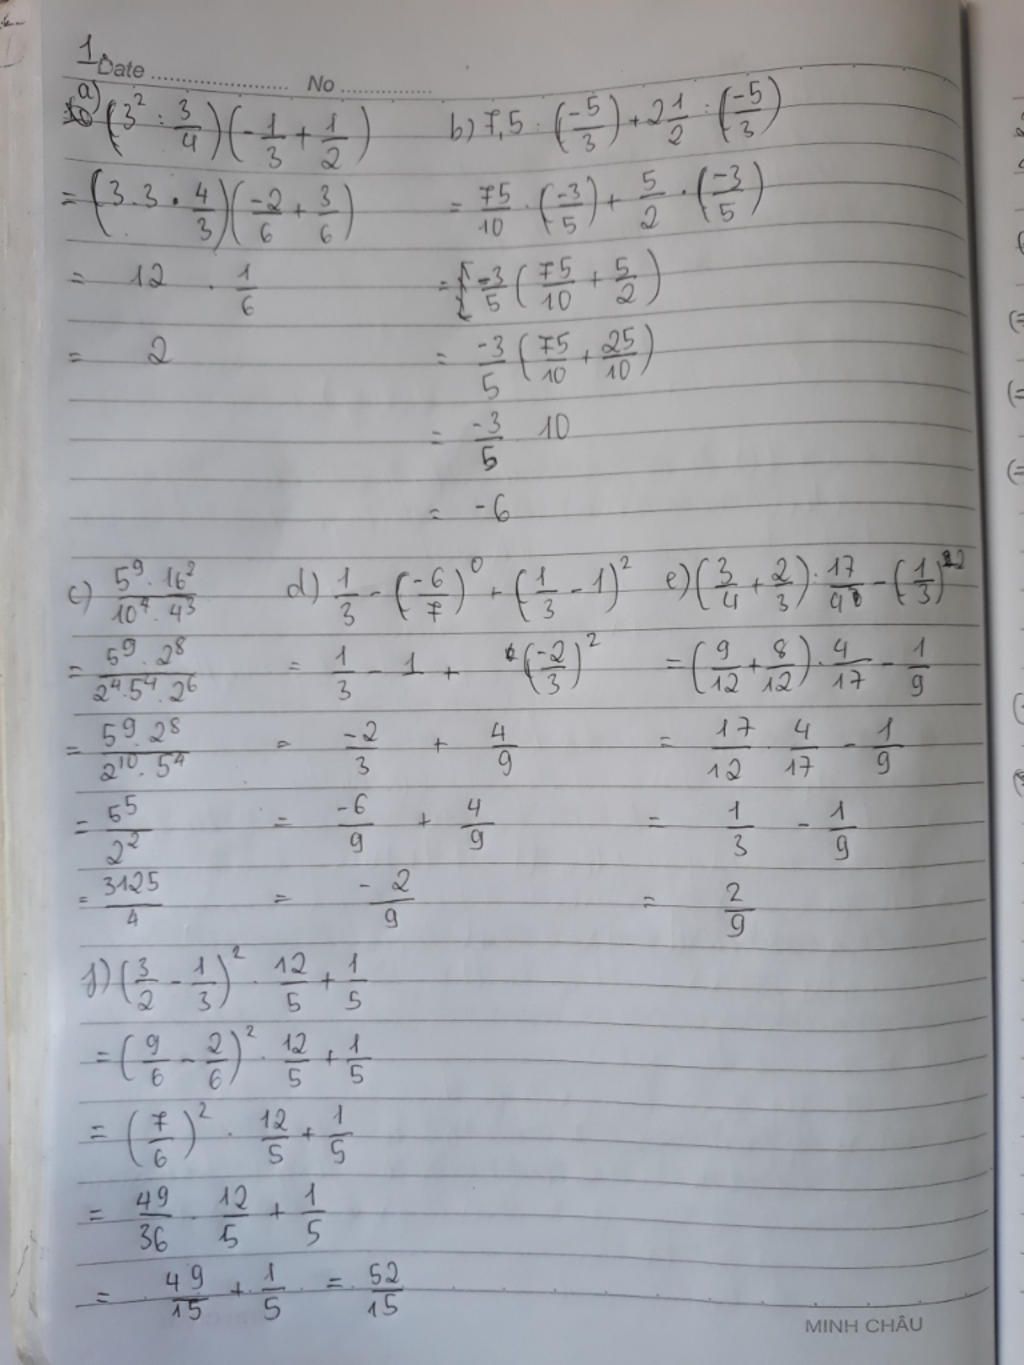 1
Date ........................ No ................
a) (3² : 3/4)(-1/3 + 1/2)
= (3.3 . 4/3)(-2/6 + 3/6)
= 12 . 1/6
= 2
b) 7,5 : (-5/3) + 2 1/2 : (-5/3)
= 75/10 . (-3/5) + 5/2 . (-3/5)
= -3/5 (75/10 + 5/2)
= -3/5 (75/10 + 25/10)
= -3/5 10
= -6
c) 5⁹ . 16² / 10⁴ . 4³
= 5⁹ . 2⁸ / 2⁴.5⁴ . 2⁶
= 5⁹. 2⁸ / 2¹⁰. 5⁴
= 5⁵ / 2²
= 3125/4
d) 1/3 - (-6/7)⁰ + (1/3 - 1)²
= 1/3 - 1 + (-2/3)²
= -2/3 + 4/9
= -6/9 + 4/9
= -2/9
e) (3/4 + 2/3) : 17/4 - (1/3)²
= (9/12 + 8/12) . 4/17 - 1/9
= 17/12 . 4/17 - 1/9
= 1/3 - 1/9
= 2/9
f) (3/2 - 1/3)² . 12/5 + 1/5
= (9/6 - 2/6)² . 12/5 + 1/5
= (7/6)² . 12/5 + 1/5
= 49/36 . 12/5 + 1/5
= 49/15 + 1/5 = 52/15
MINH CHÂU